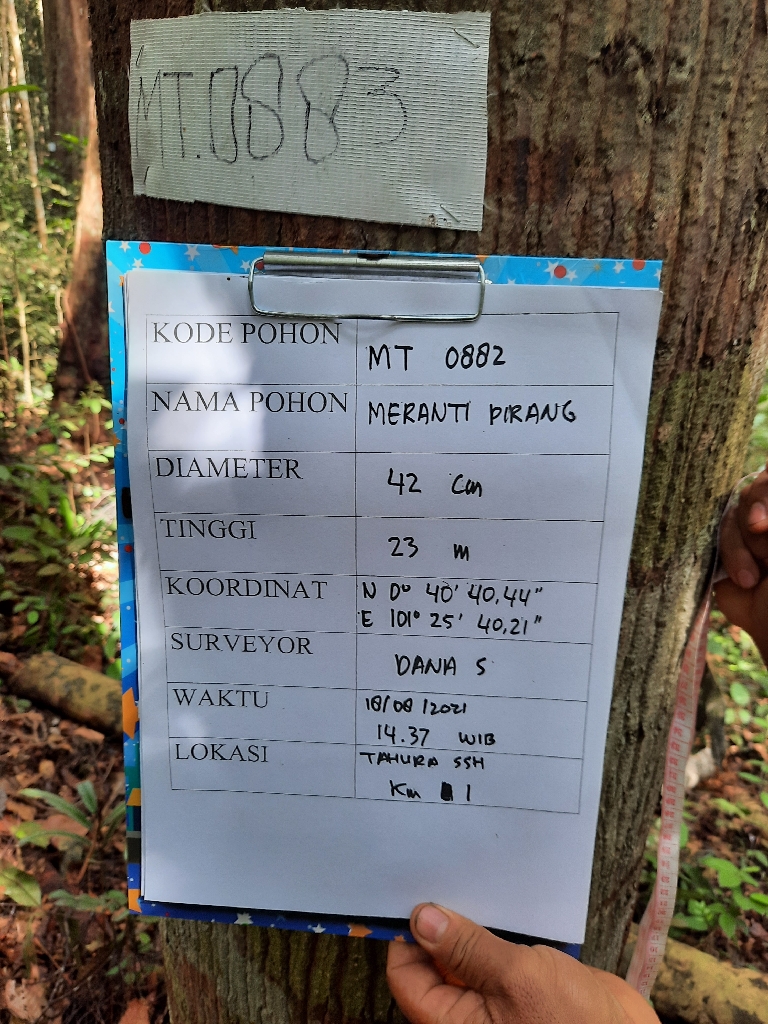 MT.0883
KODE POHON MT 0882
NAMA POHON MERANTI PIRANG
DIAMETER 42 Cm
TINGGI 23 m
KOORDINAT N 0° 40' 40,44"
E 101° 25' 40,21"
SURVEYOR DANA S
WAKTU 18/08/2021
14.37 WIB
LOKASI TAHURA SSH
Km 1